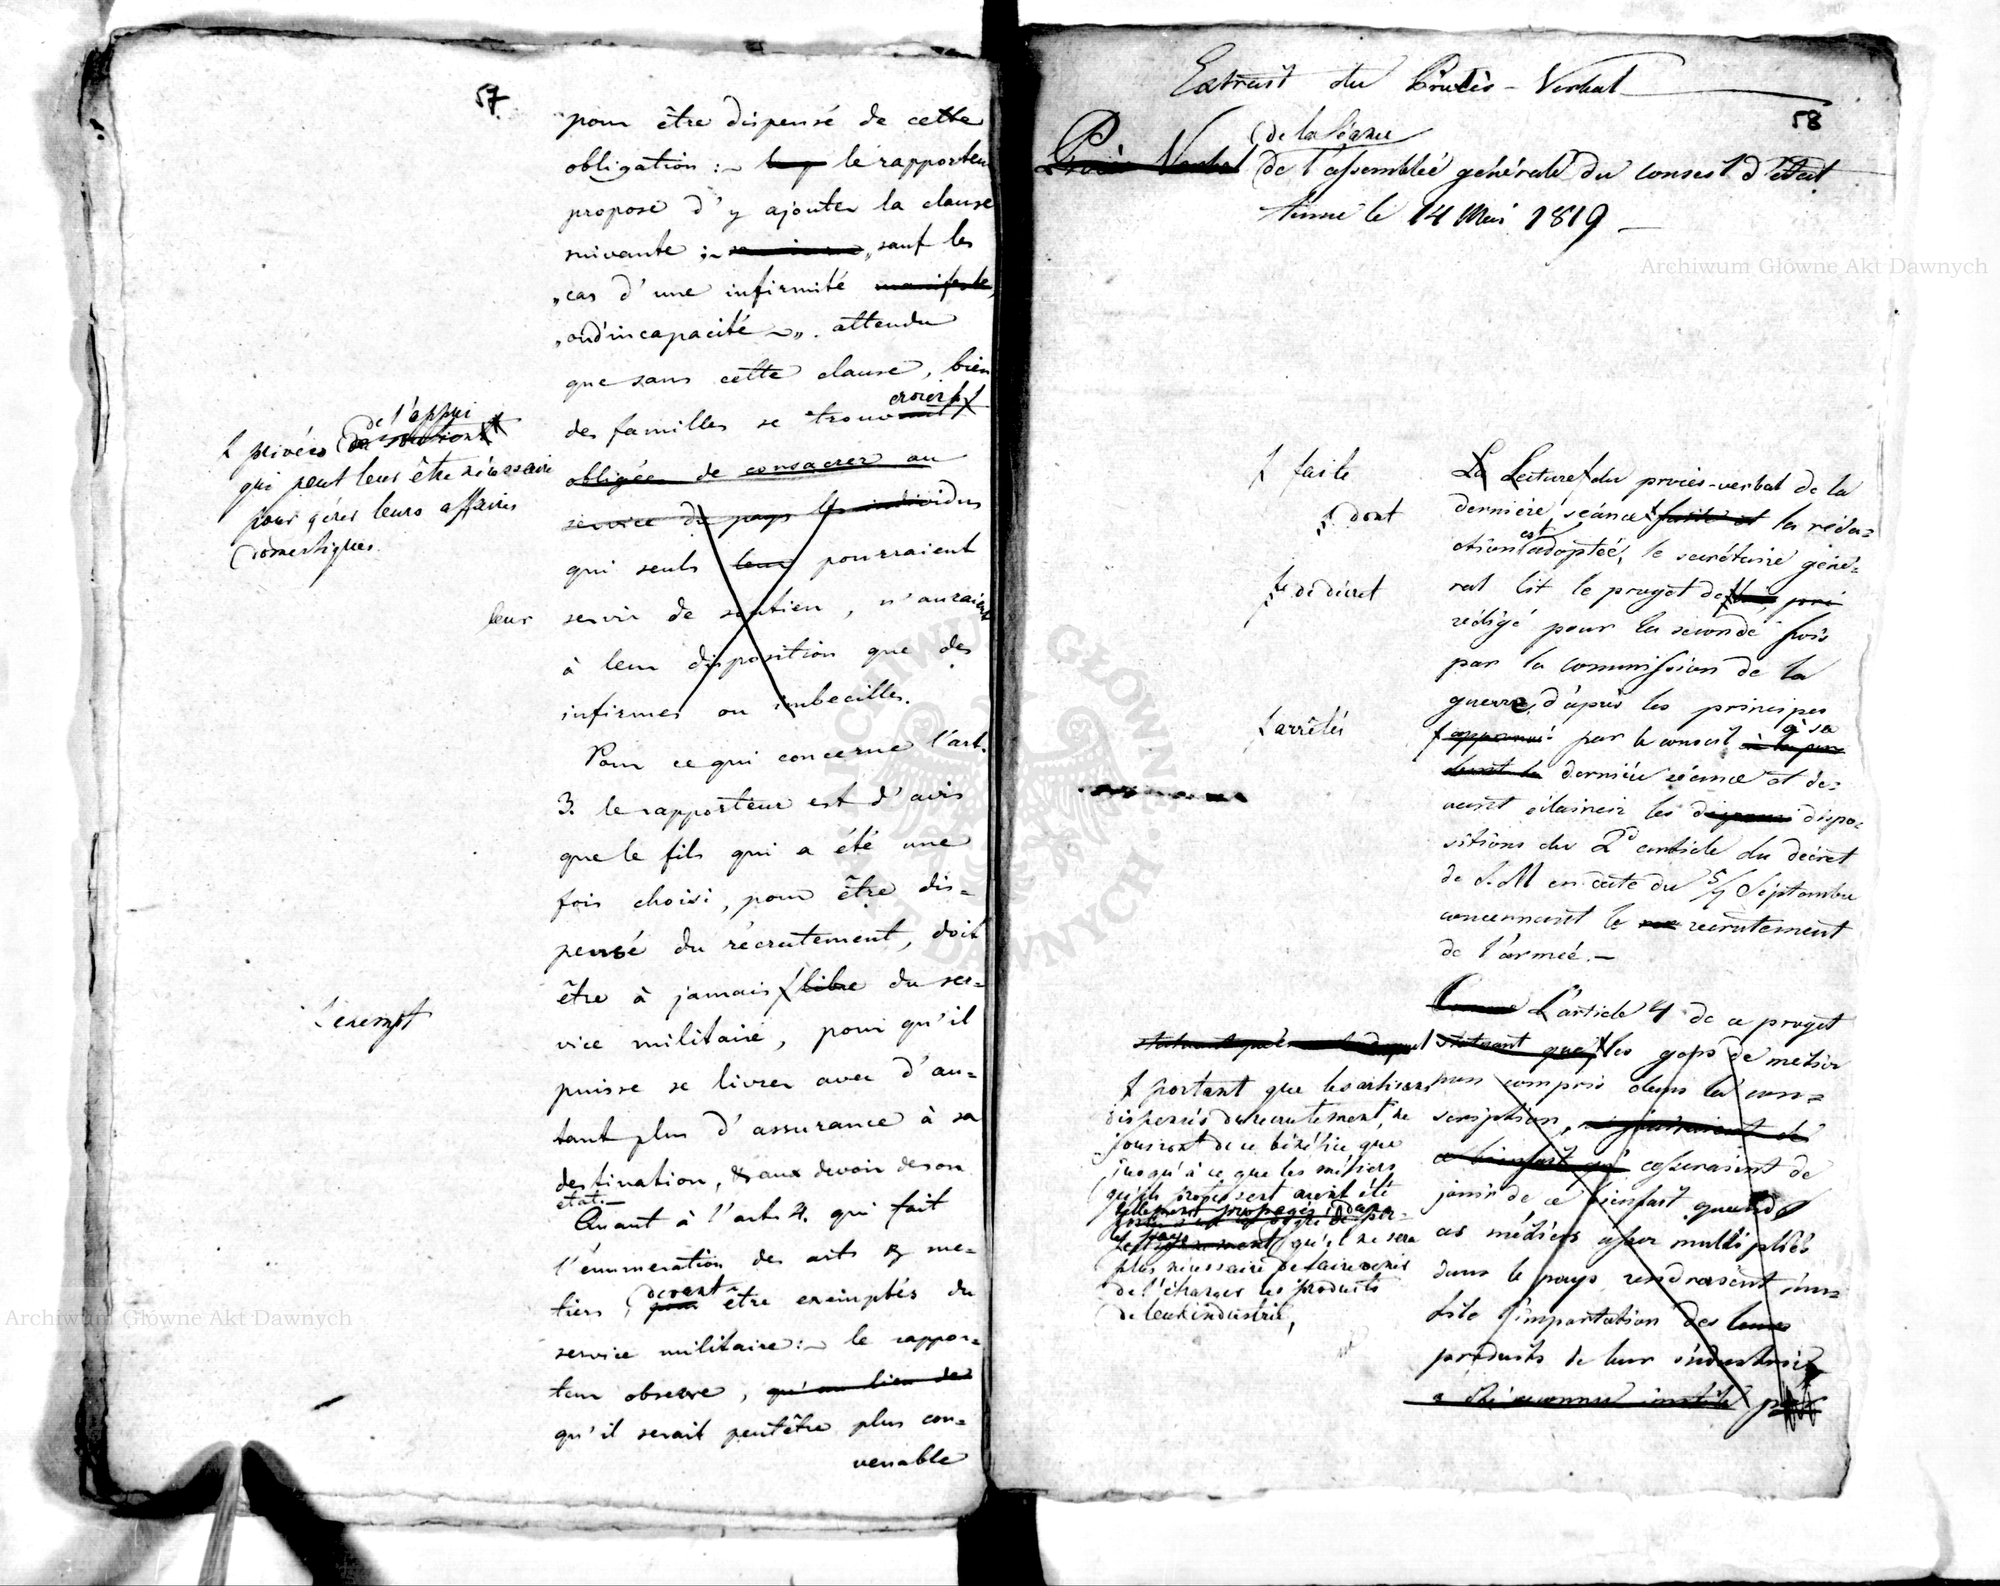 57.
pour être dispensé de cette
obligation :~ le rapporteur
propose d'y ajouter la clause
suivante :~ „sauf les
„cas d'une infirmité manifeste,
„ou d'incapacité ~". attendu
que sans cette clause, bien
des familles se trouv
obligées de consacrer au
service du pays les individus
qui seuls leur pourraient
servir de soutien, n'auraient
à leur disposition que des
infirmes ou imbecilles.
Pour ce qui concerne l'art.
3. le rapporteur est d'avis
que le fils qui a été une
fois choisi, pour être dis=
pensé du récrutement, doit
être à jamais libre du ser=
vice militaire, pour qu'il
puisse se livrer avec d'au=
tant plus d'assurance à sa
destination, & aux devoirs de son
état.—
Quant à l'art. 4. qui fait
l'énumeration des arts & me=
tiers, devant être exemptés du
service militaire :~ le rappor=
teur observe, qu'au lieu de
qu'il serait peutêtre plus con=
venable
privées de l'appui
qui peut leur être nécessaire
pour gérer leurs affaires
domestiques.
leur
exempt
Extrait du Procès-Verbal
58
de la Séance
Procès Verbal de l'assemblée générale du conseil d'état
tenue le 14 Mai 1819 —
La Lecture du procès-verbal de la
dernière séance la réda=
ction est adoptée, le secrétaire géné=
ral lit le projet de
rédigé pour la seconde fois
par la commission de la
guerre, d'après les principes
par le conseil à sa
dernière séance et de=
vant éclaircir les dispo=
sitions du 2d article du décret
de S. M en date du 5/7 Septembre
concernant le recrutement
de l'armée.—
L'article 4 de ce projet
statuant que les gens de métier
non compris dans la con=
scription, cesseraient de
jouir de ce bienfait quand
ces métiers assez multipliés
dans le pays rendraient inu=
tile l'importation des
produits de leur industrie
faite
dont
de décret
arrêtés
portant que les artisans
dispensés du recrutement, ne
jouiront de ce bénéfice que
jusqu'à ce que les métiers
qu'ils professent aient été
tellement propagés dans
le pays qu'il ne sera
plus nécessaire de faire venir
de l'étranger les produits
de leur industrie,
Archiwum Główne Akt Dawnych
Archiwum Główne Akt Dawnych
ARCHIWUM GŁÓWNE AKT DAWNYCH